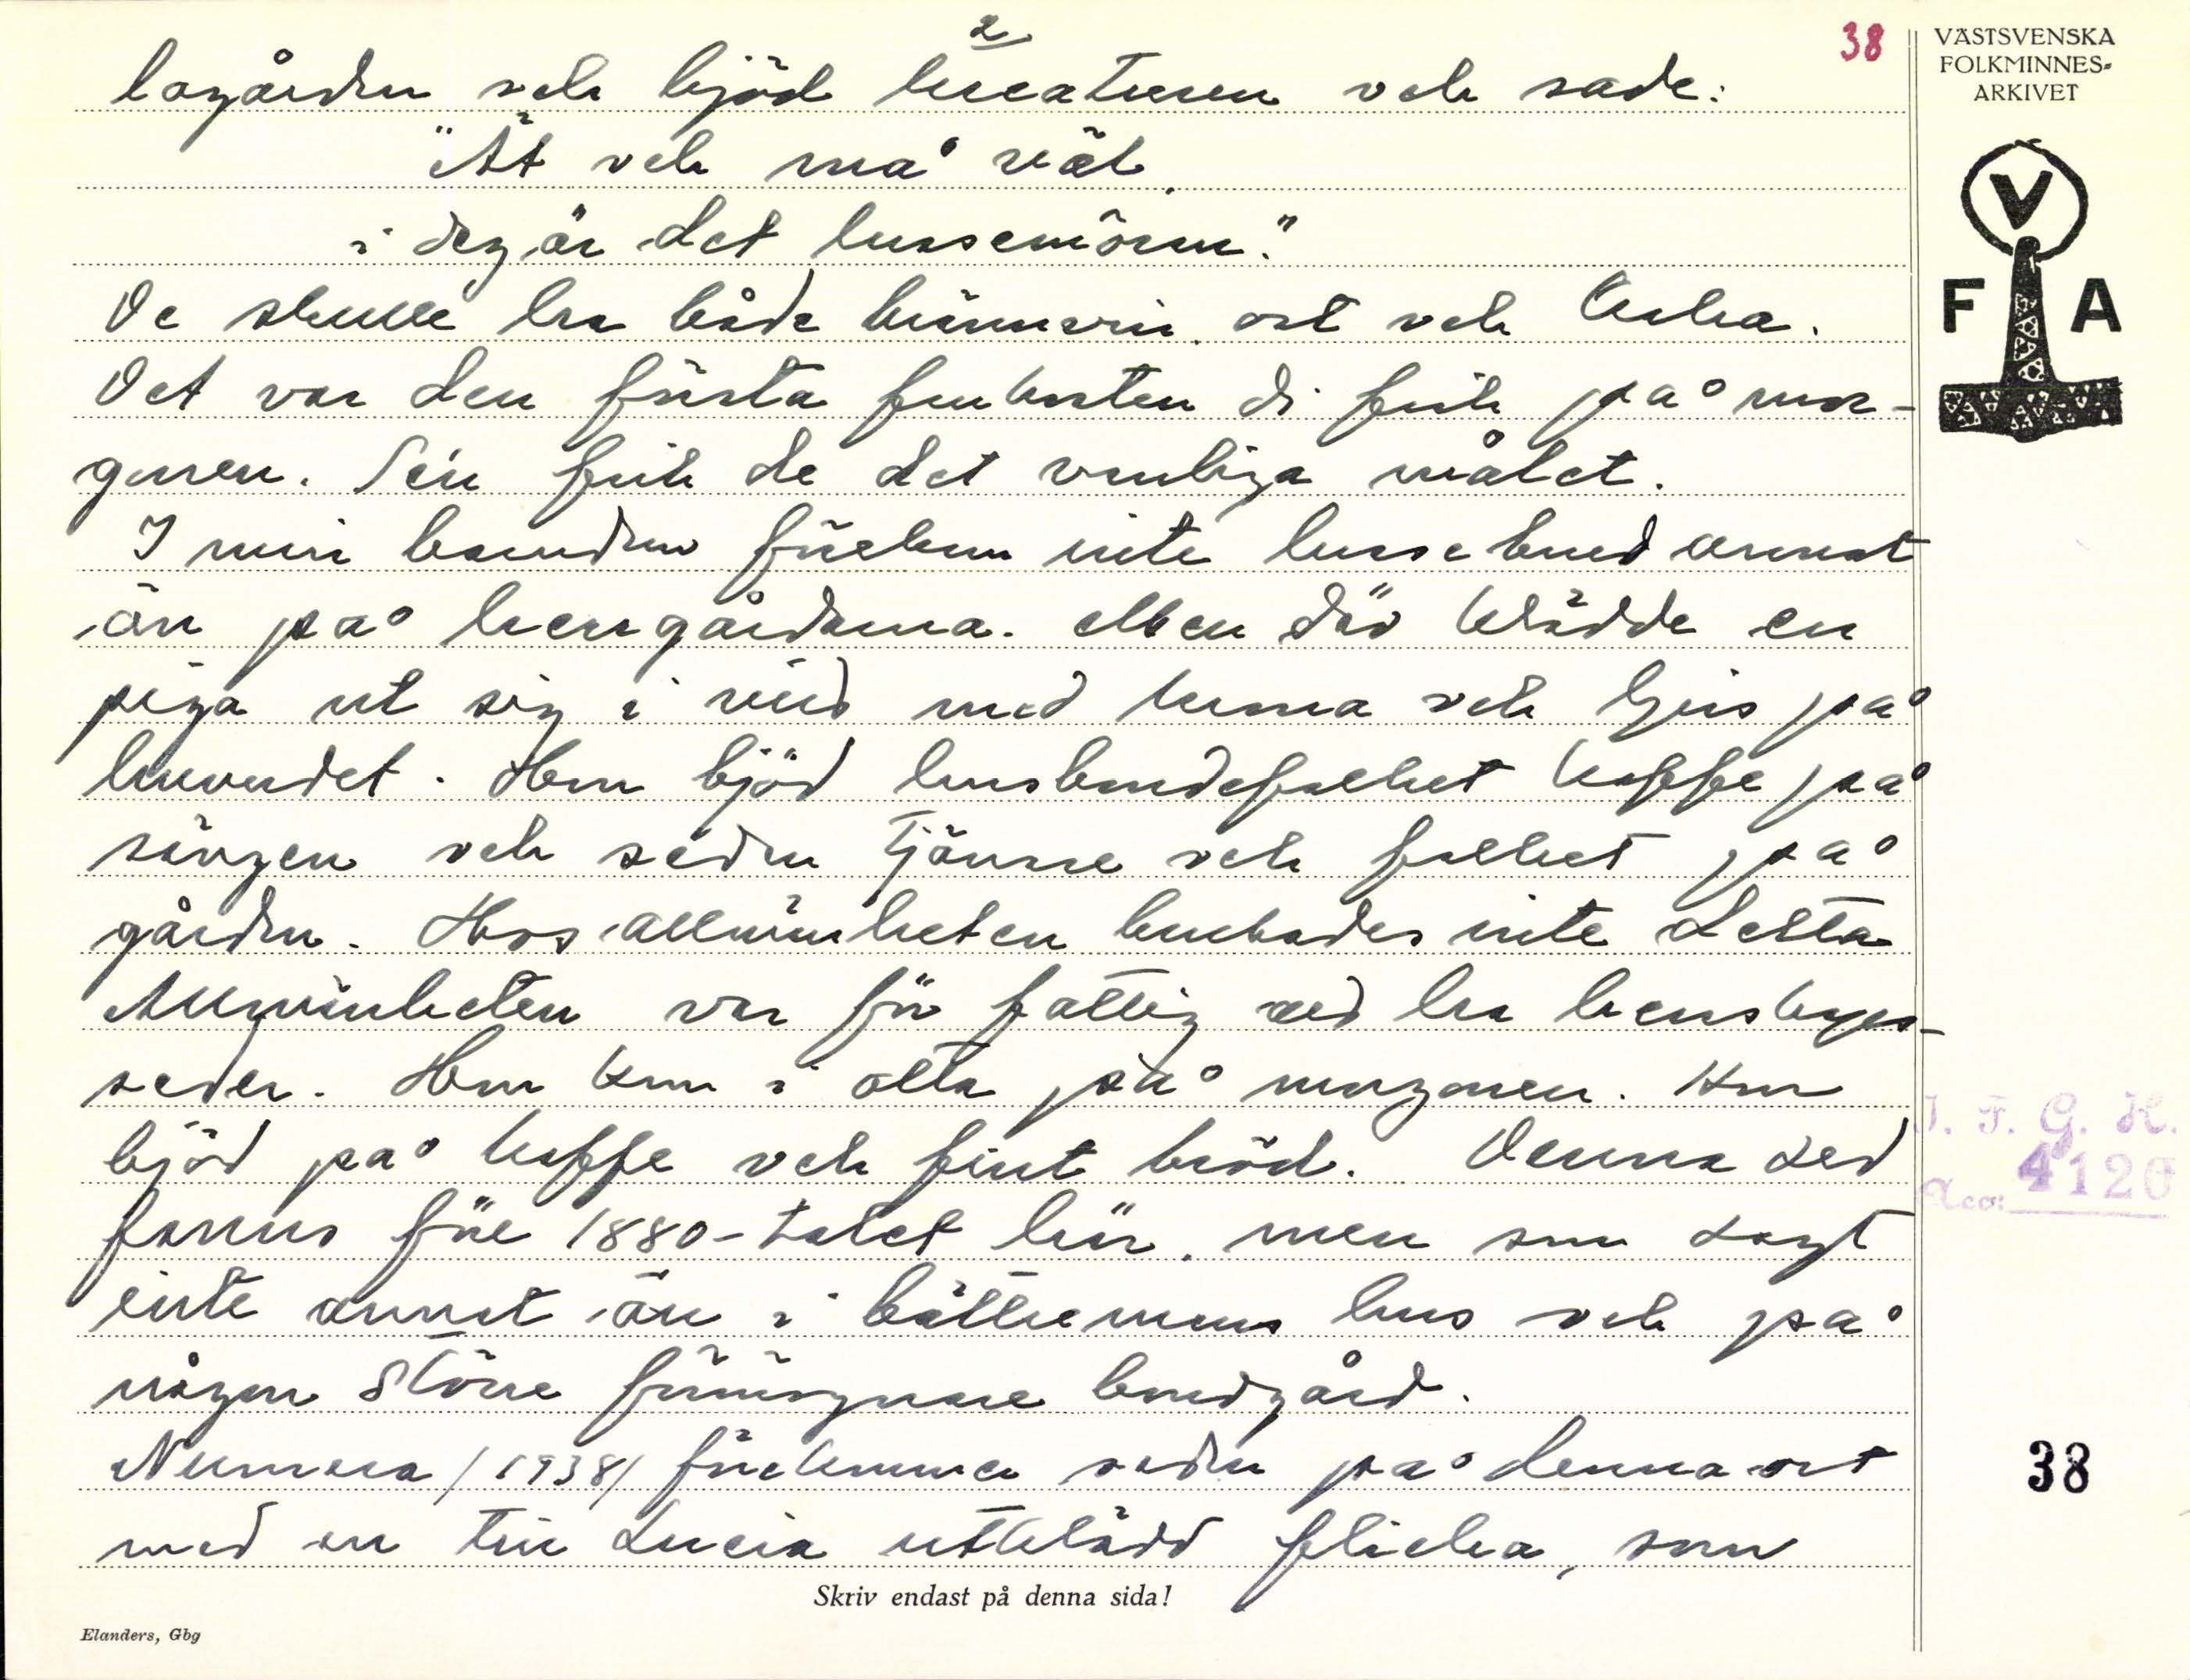 2
38
lagården och bjöd kreaturen och sade:
"Ät och må väl,
i dag är det lussemörn."
De skulle ha både brännvin, ost och kaka.
Det var den första frukosten di fick på mor-
gonen. Sen fick de det vanliga målet.
I min barndom förekom inte lussebrud annat
än på herrgårdarna. Men där klädde en
piga ut sig i vitt med krona och ljus på
huvudet. Hon bjöd husbondefolket kaffe på
sängen och sedan tjänare och folket på
gården. Hos allmänheten brukades inte detta
Allmänheten var för fattig att ha herrskaps-
seder. Hon kom i otta på morgonen. Hon
bjöd på kaffe och fint bröd. Denna sed
fanns före 1880-talet här, men som sagt
inte annat än i bättremans hus och på
någon större förmögnare bondgård.
Numera /1938/ förekommer seden på denna ort
med en till Lucia utklädd flicka, som
Skriv endast på denna sida!
Elanders, Gbg
VÄSTSVENSKA
FOLKMINNES-
ARKIVET
V
F A
I. F. G. H.
Acc: 4120
38